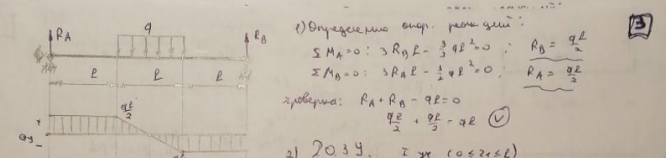 R_A q R_B
1) Определение опор. реакций:
3
ΣM_A=0: 3R_Bl - 3/2 ql²=0; R_B = ql/2
ΣM_B=0: 3R_Al - 3/2 ql²=0; R_A = ql/2
l l l
проверка: R_A + R_B - ql=0
ql/2 + ql/2 - ql
ql/2
+
Qy
-
2) I уч (0≤z₁≤l)